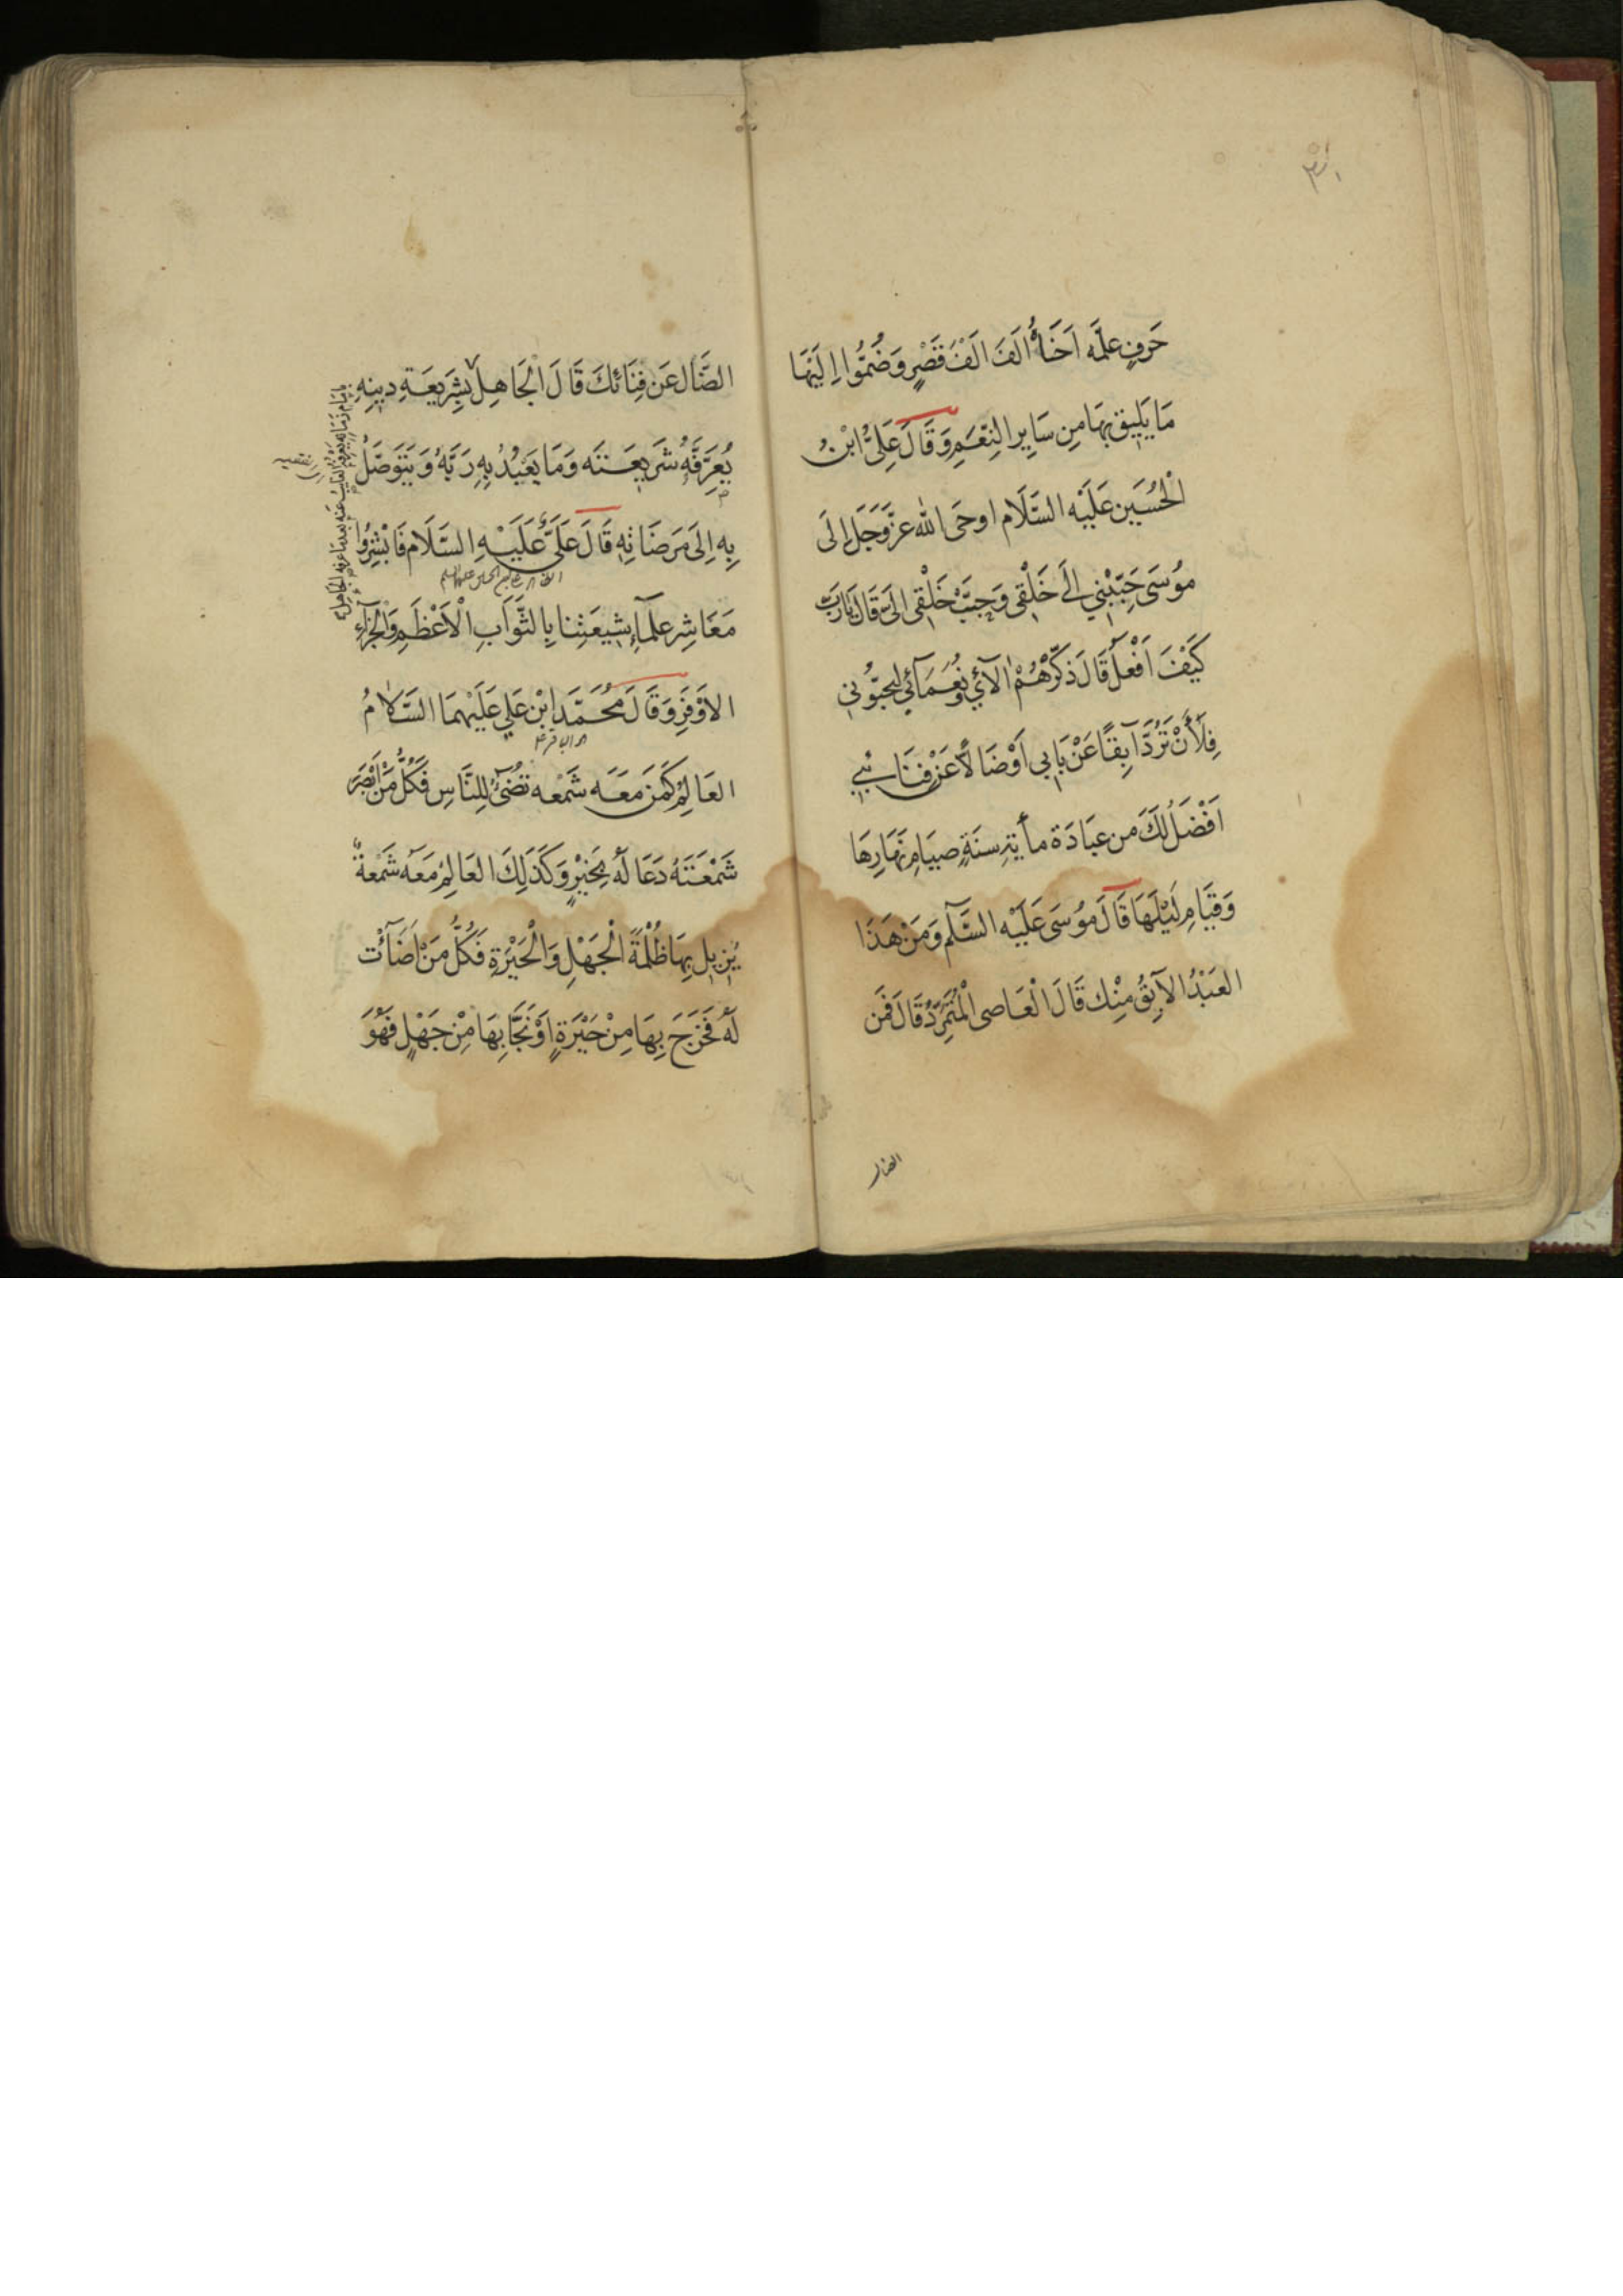 حَرفٍ علَّمَه اَخَاهُ الَفَ الَفْ قَصْرٍ وَضُمُّوا اِلَيْهَا
مَا يَليقُ بِهَا مِن سَايِرِ النِّعَمِ وَقَالَ عَلِىُّ ابْنُ
الْحُسَيِن عَلَيْه السَّلَام اوحَى الله عزَّوَجَلَّ اِلَى
مُوسَى حَبِّبْني اِلَى خَلْقى وَحبِّبْ خَلْقى الىَّ قَالَ يَا رَبِّ
كَيْفَ اَفْعلُ قَالَ ذَكِّرْهُمْ الآئي وَنُعَمَآئي ليحبّوُنى
فِلَأَنْ تَرُدَّ آبِقًا عَنْ بَابي اَوْضَالًّا عَنْ فِنَائي
اَفْضَلُ لَكَ من عبَادَة مأية سنَةٍ صيَامِ نَهَارِهَا
وَقِيَامِ لَيْلَهَا قَالَ مُوسَى عَلَيْه السَّلَم وَمَنْ هَذَا
العَبْدُ الآبِقُ مِنْك قَالَ الْعَاصى الْمُتَمَرِّدُ قَالَ فَمَن
الضال
الضَّال عَن فِنَائكَ قَالَ الْجَاهِل بِشَرِيعَةِ دينِهِ
يُعَرِّفُهُ شَريعَتَه وَمَا يَعْبُدُ بِهِ رَبَّهُ وَيَتَوَصَّلُ
بِه اِلَى مَرضَاتِه قَالَ عَلَىٌّ عَلَيْهِ السَّلَام فَابْشِرُوا
مَعَاشِرِ علمَآءِ شِيعَتِنا بِالثَّوَابِ الْاَعْظَمِ وَالْجَزَآءِ
الاَوْفَرِ وَقَالَ مُحَمَّدِ ابْن عَلي عَلَيْهِمَا السَّلَامُ
العَالِمُ كَمَنَ مَعَه شَمْعه تضُىءُ لِلنَّاسِ فَكلُّ مَنْ اَبْصَرَ
شَمْعَتَهُ دَعَا لَهُ بِخَيْرٍ وَكَذلِكَ العَالِمُ مَعَه شَمْعةٌ
يُزيل بِهَا ظُلْمَةَ الْجَهْلِ وَالْحَيْرَةِ فَكُلُّ مَنْ اَضَآئَت
لَهُ فَخَرَجَ بِهَا مِنْ حَيْرَةٍ اَوْ نَجَا بِهَا مِنْ جَهْلٍ فَهُوَ